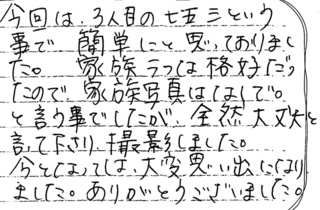 今回は、3人目の七五三という
事で 簡単にと思っておりまし
た。 家族ラフは格好だっ
たので、家族写真はなしで。
と言う事でしたが、全然大丈夫と
言て下さり 撮影しました。
今となっては、大変思い出になり
ました。ありがとうございました。